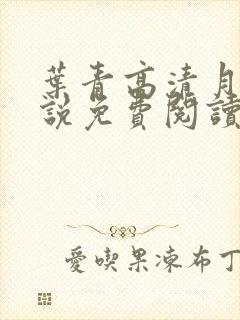 葉青高清月
說免費閱讀
愛喫果凍布丁